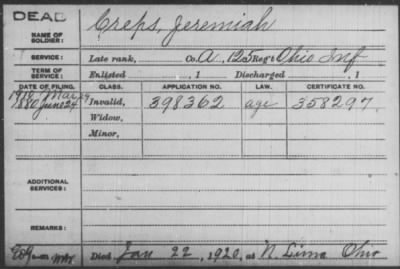 DEAD
NAME OF SOLDIER: Creps, Jeremiah
SERVICE: Late rank, Co. A, 125 Reg't Ohio Inf
TERM OF SERVICE: Enlisted , 1 Discharged , 1
DATE OF FILING. CLASS. APPLICATION NO. LAW. CERTIFICATE NO.
1880 June 24 Invalid, 398362 age 358297.
Widow,
Minor,
ADDITIONAL SERVICES:
REMARKS:
Died Jan 22, 1920, at N. Lima Ohio